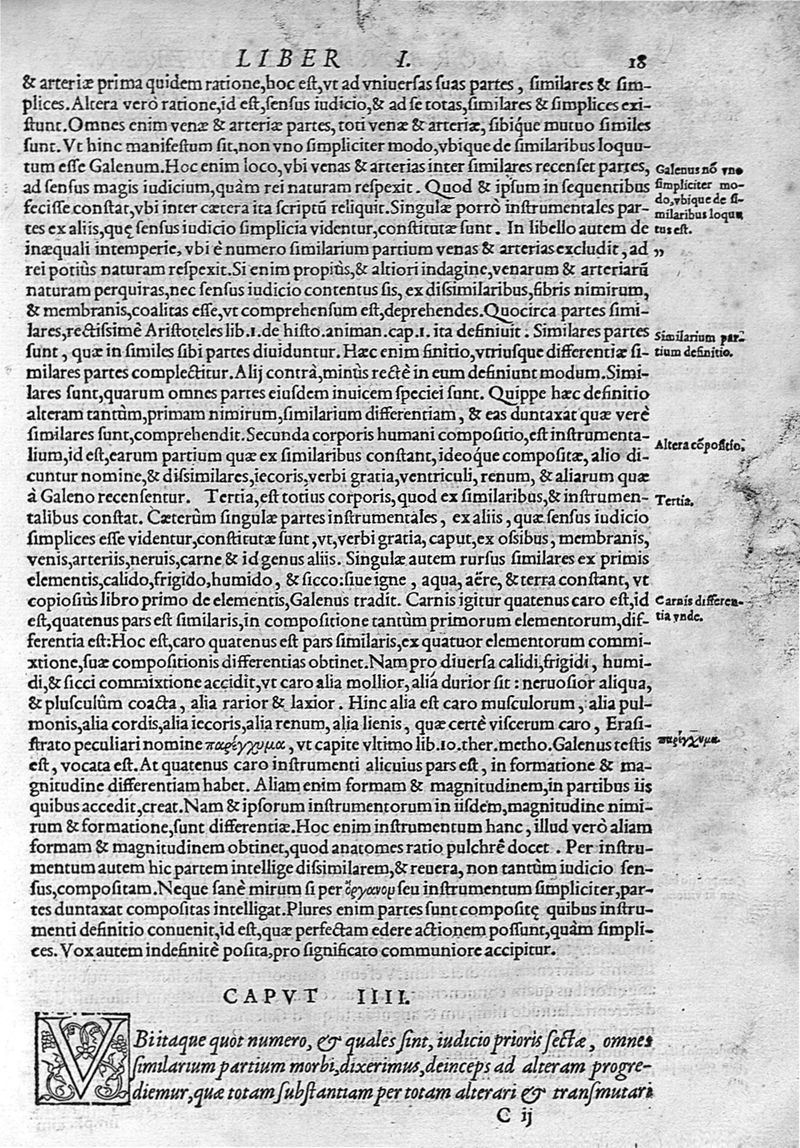 LIBER I. 18
& arteriæ prima quidem ratione,hoc est,vt ad vniuersas suas partes, similares & sim-
plices. Altera verò ratione,id est,sensus iudicio,& ad se totas,similares & simplices exi-
stunt. Omnes enim venæ & arteriæ partes, toti venæ & arteriæ, sibíque mutuo similes
sunt. Vt hinc manifestum sit,non vno simpliciter modo,vbique de similaribus loquu-
tum esse Galenum. Hoc enim loco, vbi venas & arterias inter similares recenset partes,
ad sensus magis iudicium,quàm rei naturam respexit. Quod & ipsum in sequentibus
fecisse constat,vbi inter cætera ita scriptũ reliquit. Singulæ porrò instrumentales par-
tes ex aliis,quę sensus iudicio simplicia videntur,constitutæ sunt. In libello autem de
inæquali intemperie, vbi è numero similarium partium venas & arterias excludit, ad
rei potiùs naturam respexit. Si enim propiùs,& altiori indagine,venarum & arteriarũ
naturam perquiras,nec sensus iudicio contentus sis, ex dissimilaribus,fibris nimirum,
& membranis,coalitas esse,vt comprehensum est,deprehendes. Quocirca partes simi-
lares,rectissimè Aristoteles lib.1.de histo.animan.cap.1. ita definiuit. Similares partes
sunt, quæ in similes sibi partes diuiduntur. Hæc enim finitio,vtriusque differentiæ si-
milares partes complectitur. Alij contrà,minùs rectè in eum definiunt modum. Simi-
lares sunt,quarum omnes partes eiusdem inuicem speciei sunt. Quippe hæc definitio
alteram tantùm,primam nimirum,similarium differentiam, & eas duntaxat quæ verè
similares sunt,comprehendit. Secunda corporis humani compositio,est instrumenta-
lium,id est,earum partium quæ ex similaribus constant, ideoque compositæ, alio di-
cuntur nomine,& dissimilares,iecoris,verbi gratia,ventriculi, renum, & aliarum quæ
à Galeno recensentur. Tertia,est totius corporis,quod ex similaribus,& instrumen-
talibus constat. Cæterùm singulæ partes instrumentales, ex aliis, quæ sensus iudicio
simplices esse videntur,constitutæ sunt, vt, verbi gratia, caput, ex ossibus, membranis,
venis,arteriis,neruis,carne & id genus aliis. Singulæ autem rursus similares ex primis
elementis,calido,frigido,humido, & sicco:siue igne, aqua, aëre, & terra constant, vt
copiosiùs libro primo de elementis,Galenus tradit. Carnis igitur quatenus caro est,id
est,quatenus pars est similaris,in compositione tantùm primorum elementorum,dif-
ferentia est:Hoc est,caro quatenus est pars similaris,ex quatuor elementorum commi-
xtione,suæ compositionis differentias obtinet. Nam pro diuersa calidi,frigidi, humi-
di,& sicci commixtione accidit,vt caro alia mollior, aliá durior sit: neruosior aliqua,
& plusculùm coacta, alia rarior & laxior. Hinc alia est caro musculorum, alia pul-
monis,alia cordis,alia iecoris,alia renum, alia lienis, quæ certè viscerum caro, Erasi-
strato peculiari nomine παρέγχυμα, vt capite vltimo lib.10.ther.metho.Galenus testis
est, vocata est. At quatenus caro instrumenti alicuius pars est, in formatione & ma-
gnitudine differentiam habet. Aliam enim formam & magnitudinem,in partibus iis
quibus accedit,creat. Nam & ipsorum instrumentorum in iisdem,magnitudine nimi-
rum & formatione,sunt differentiæ. Hoc enim instrumentum hanc, illud verò aliam
formam & magnitudinem obtinet,quod anatomes ratio pulchrê docet. Per instru-
mentum autem hic partem intellige dissimilarem,& reuera, non tantùm iudicio sen-
sus,compositam. Neque sanè mirum si per ὄργανον seu instrumentum simpliciter,par-
tes duntaxat compositas intelligat. Plures enim partes sunt compositę quibus instru-
menti definitio conuenit,id est,quæ perfectam edere actionem possunt,quàm simpli-
ces. Vox autem indefinitè posita,pro significato communiore accipitur.
Galenus nõ vno
simpliciter mo-
do,vbique de si-
milaribus loqu
tus est.
„
Similarium par-
tium definitio.
Altera cõpositio.
Tertia.
Carnis differen-
tia vnde.
παρέγχυμα.
CAPVT IIII.
VBi itaque quòt numero, & quales sint, iudicio prioris sectæ, omnes
similarium partium morbi,dixerimus,deinceps ad alteram progre-
diemur,quæ totam substantiam per totam alterari & transmutari
C ij